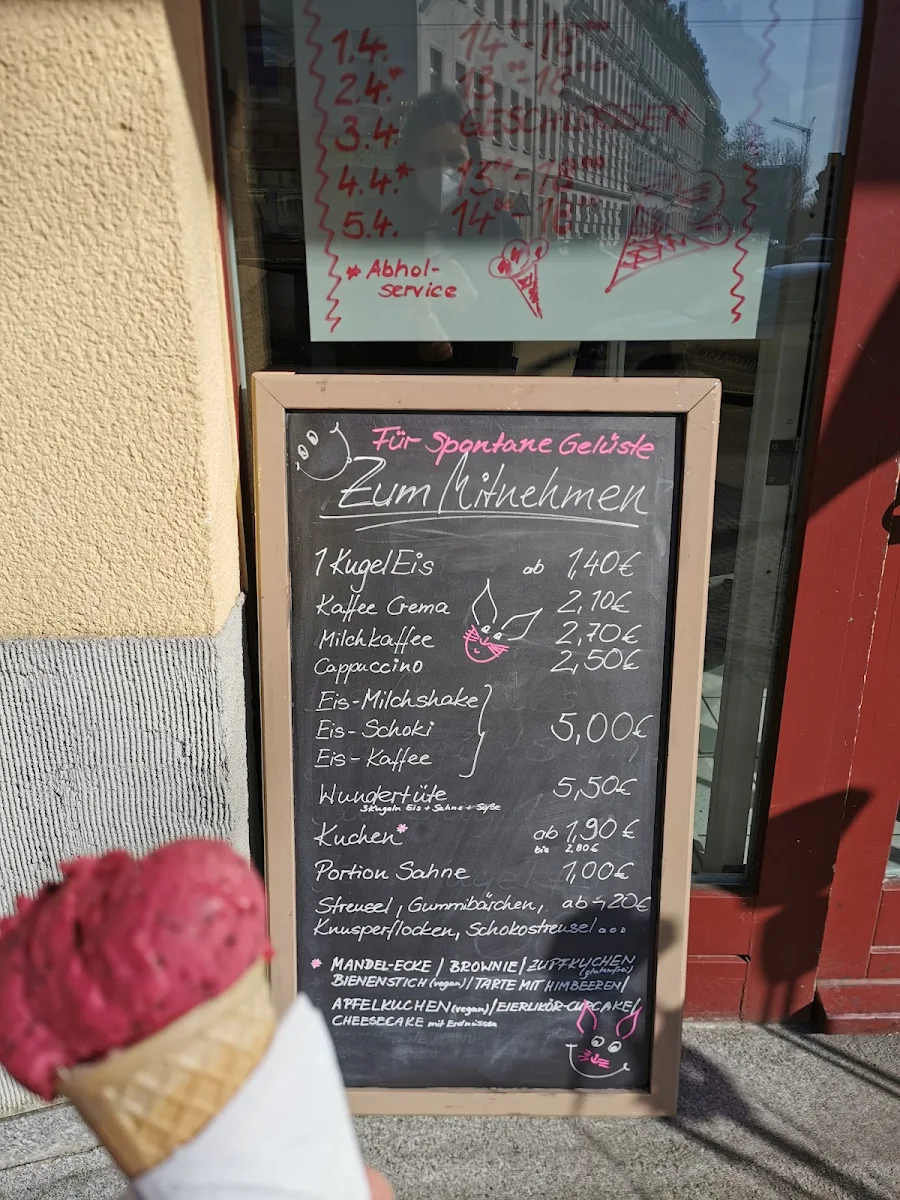 1.4. 14⁰⁰-18⁰⁰
2.4.* 13⁰⁰-18⁰⁰
3.4. GESCHLOSSEN
4.4.* 13⁰⁰-18⁰⁰
5.4. 14⁰⁰-18⁰⁰
* Abhol-
service
Für Spontane Gelüste
Zum Mitnehmen
1 Kugel Eis ab 1,40€
Kaffee Crema 2,10€
Milchkaffee 2,70€
Cappuccino 2,50€
Eis-Milchshake
Eis-Schoki 5,00€
Eis-Kaffee
Wundertüte 5,50€
3 Kugeln Eis + Sahne + Soße
Kuchen* ab 1,90€
bis 2,80€
Portion Sahne 1,00€
Streusel, Gummibärchen, ab -,20€
Knusperflocken, Schokostreusel...
* MANDEL-ECKE / BROWNIE / ZUPFKUCHEN
(glutenfrei)
BIENENSTICH (vegan) / TARTE MIT HIMBEEREN /
APFELKUCHEN (vegan) / EIERLIKÖR-CUPCAKE /
CHEESECAKE mit Erdnüssen